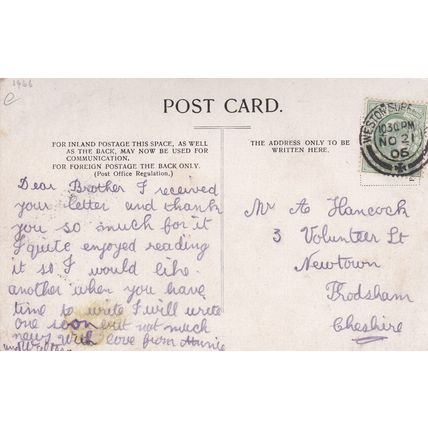 1466
e
POST CARD.
FOR INLAND POSTAGE THIS SPACE, AS WELL
AS THE BACK, MAY NOW BE USED FOR
COMMUNICATION.
FOR FOREIGN POSTAGE THE BACK ONLY.
(Post Office Regulation.)
THE ADDRESS ONLY TO BE
WRITTEN HERE.
WESTON SUPER
10.30 PM
NO 21
06
Dear Brother I received
your letter and thank
you so much for it
I quite enjoyed reading
it so I would like
another when you have
time to write I will write
one soon but not much
news with love from Annie
and
Mr A Hancock
3 Volunteer St
Newtown
Frodsham
Cheshire